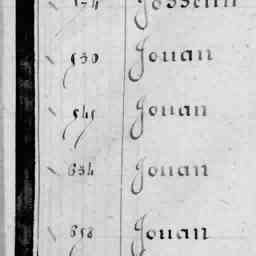 574 Josselin
530 Jouan
545 Jouan
634 Jouan
658 Jouan